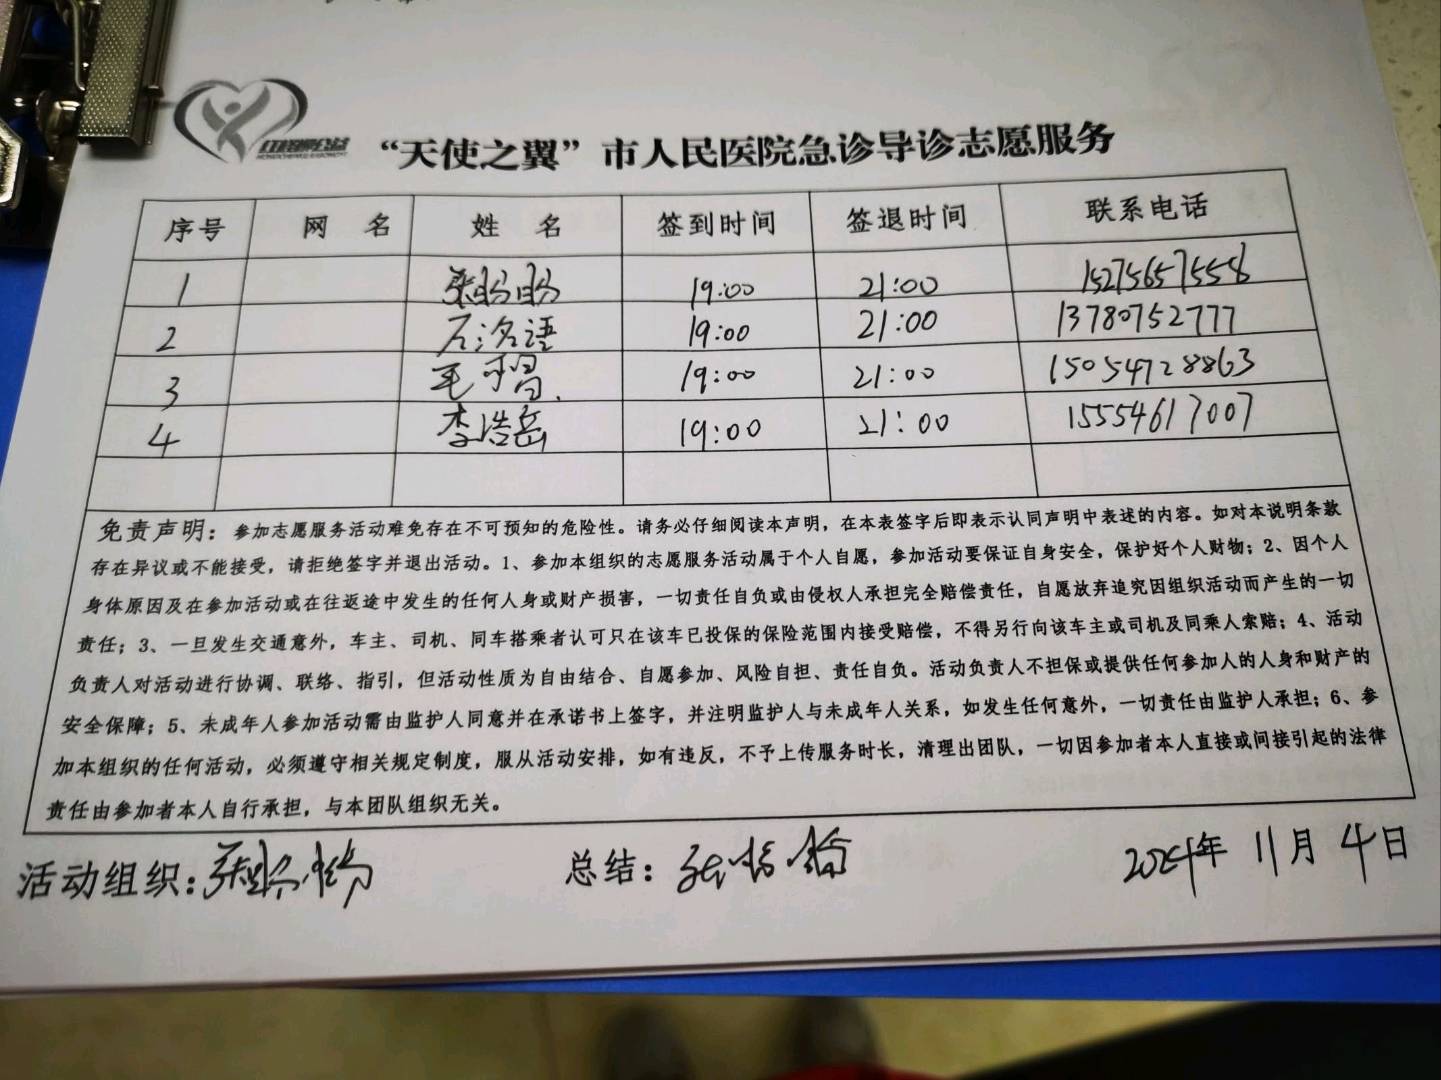 “天使之翼”市人民医院急诊导诊志愿服务
序号 网 名 姓 名 签到时间 签退时间 联系电话
1 盼盼 19:00 21:00 15275657558
2 石洺语 19:00 21:00 13780752777
3 毛 19:00 21:00 15054728863
4 李浩岳 19:00 21:00 15554617007
免责声明：参加志愿服务活动难免存在不可预知的危险性。请务必仔细阅读本声明，在本表签字后即表示认同声明中表述的内容。如对本说明条款
存在异议或不能接受，请拒绝签字并退出活动。1、参加本组织的志愿服务活动属于个人自愿，参加活动要保证自身安全，保护好个人财物；2、因个人
身体原因及在参加活动或在往返途中发生的任何人身或财产损害，一切责任自负或由侵权人承担完全赔偿责任，自愿放弃追究因组织活动而产生的一切
责任；3、一旦发生交通意外，车主、司机、同车搭乘者认可只在该车已投保的保险范围内接受赔偿，不得另行向该车主或司机及同乘人索赔；4、活动
负责人对活动进行协调、联络、指引，但活动性质为自由结合、自愿参加、风险自担、责任自负。活动负责人不担保或提供任何参加人的人身和财产的
安全保障；5、未成年人参加活动需由监护人同意并在承诺书上签字，并注明监护人与未成年人关系，如发生任何意外，一切责任由监护人承担；6、参
加本组织的任何活动，必须遵守相关规定制度，服从活动安排，如有违反，不予上传服务时长，清理出团队，一切因参加者本人直接或间接引起的法律
责任由参加者本人自行承担，与本团队组织无关。
活动组织：盼盼 总结： 2024年 11月 4日